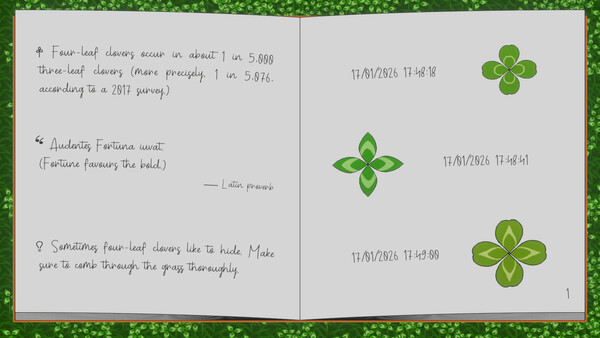 Four-leaf clovers occur in about 1 in 5.000
three-leaf clovers (more precisely, 1 in 5.076,
according to a 2017 survey.)
“ Audentes Fortuna iuvat.
(Fortune favours the bold.)
— Latin proverb
Sometimes four-leaf clovers like to hide. Make
sure to comb through the grass thoroughly.
17/01/2026 17:48:18
17/01/2026 17:48:41
17/01/2026 17:49:00
1